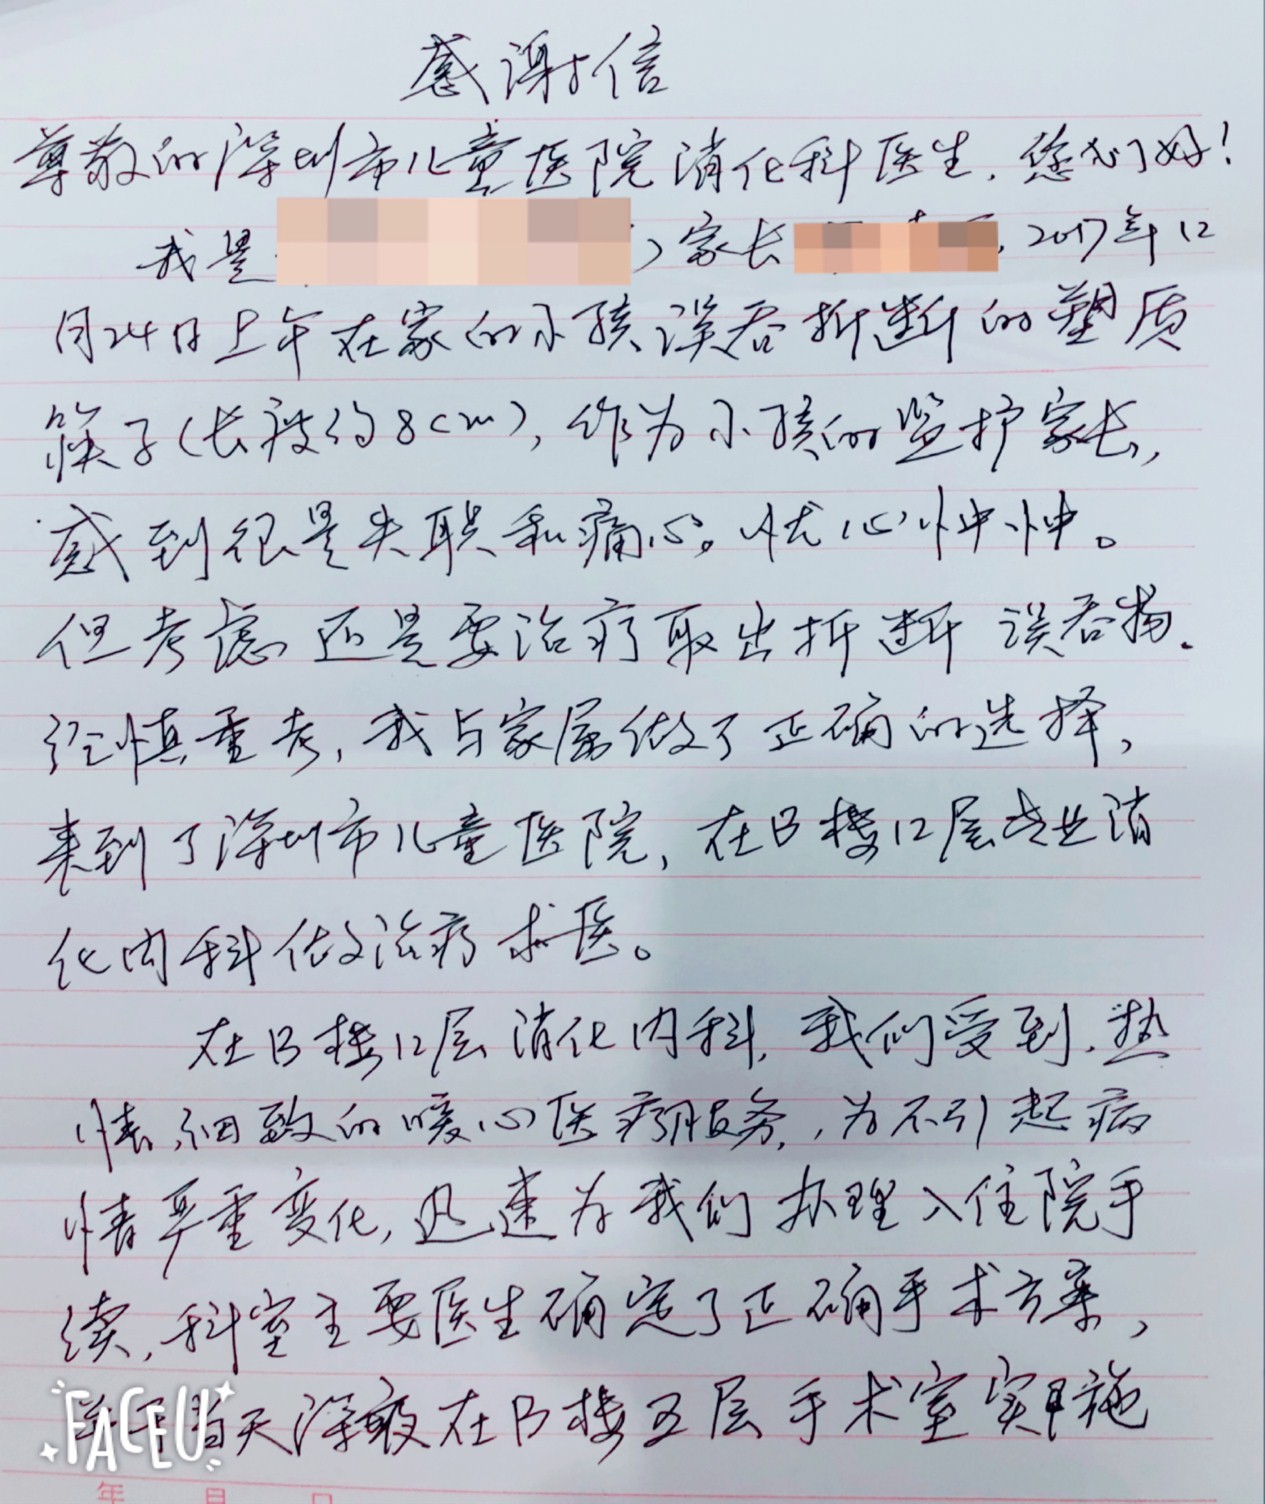 感谢信
尊敬的深圳市儿童医院消化科医生，您们好！
我是）家长，2017年12
月24日上午在家的小孩误吞折断的塑质
筷子(长度约8cm)，作为小孩的监护家长，
感到很是失职和痛心。忧心忡忡。
但考虑还是要治疗取出折断误吞物.
经慎重考，我与家属做了正确的选择，
来到了深圳市儿童医院，在B楼12层专业消
化内科做治疗求医。
在B楼12层消化内科，我们受到.热
情.细致的暖心医疗服务，为不引起病
情严重变化，迅速为我们办理入住院手
续，科室主要医生确定了正确手术方案，
当天深夜在B楼五层手术室实施
FACEU
年 月 日